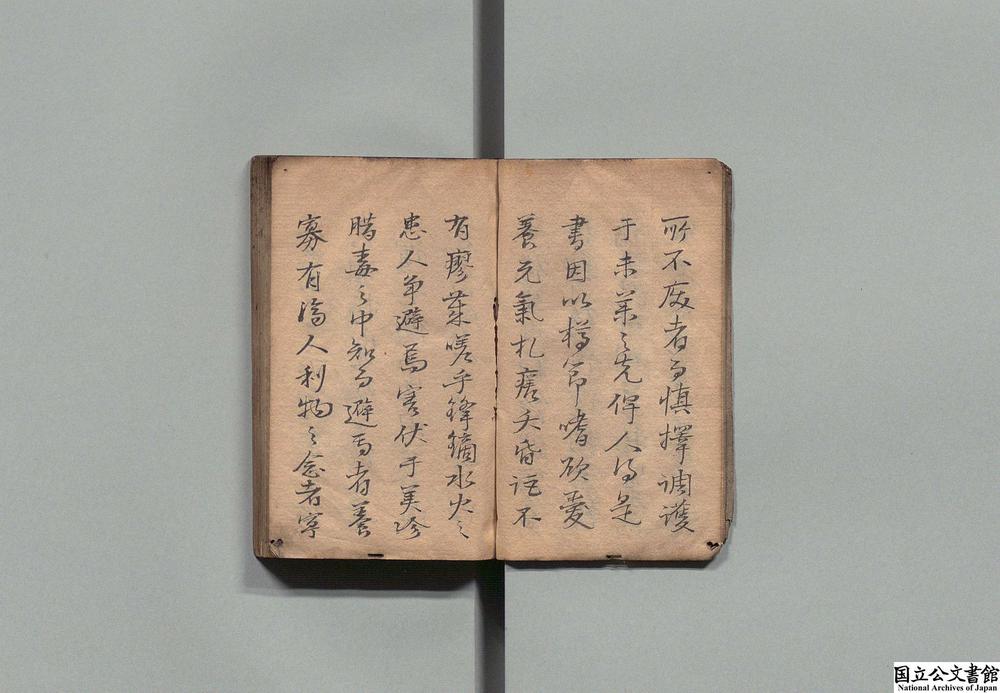 所不废者而慎擇調護
于未萠之先俾人得是
書因以樽節嗜欲愛
養元氣札瘥夭昏詎不
有廖㢤嗟乎鋒鏑水火之
患人争避焉害伏于美珍
腊毒之中知而避焉者盖
寡有濟人利物之念者寜
国立公文書館
National Archives of Japan